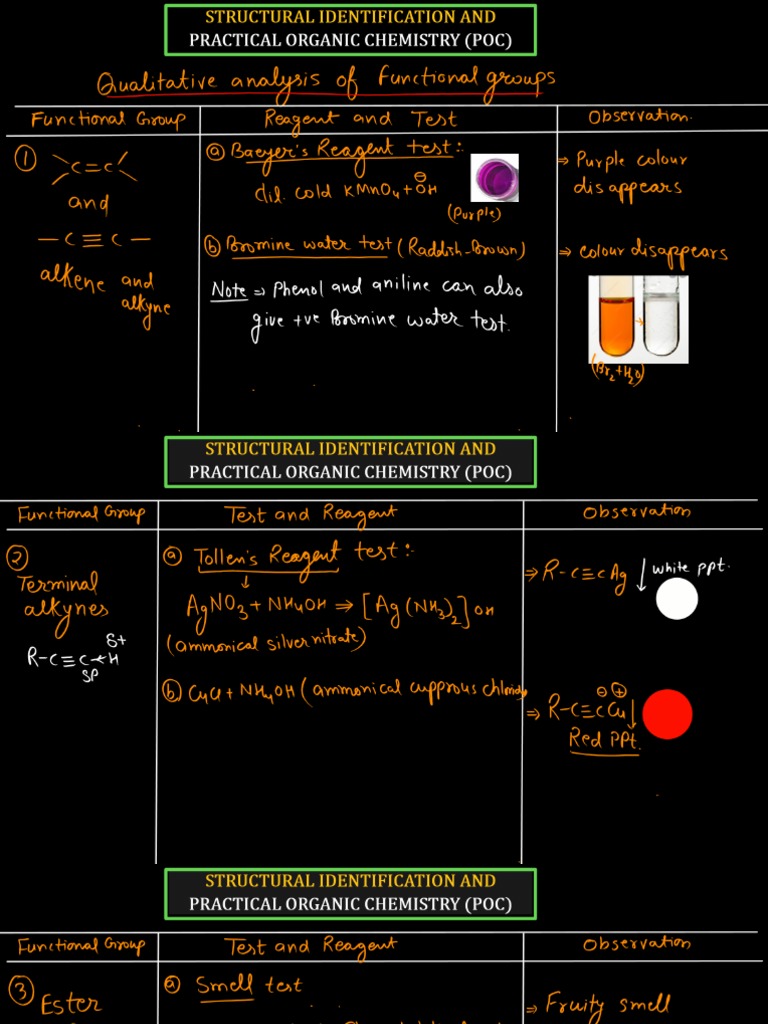 STRUCTURAL IDENTIFICATION AND
PRACTICAL ORGANIC CHEMISTRY (POC)
Qualitative analysis of Functional groups
Functional Group
Reagent and Test
Observation.
① >C=C<
and
—C≡C—
alkene and
alkyne
ⓐ Baeyer's Reagent test:
dil. cold KMnO4 + OH⊖
(Purple)
⇒ Purple colour
disappears
ⓑ Bromine water test (Raddish-Brown)
⇒ colour disappears
Note ⇒ Phenol and aniline can also
give +ve Bromine water test.
(Br2+H2O)
STRUCTURAL IDENTIFICATION AND
PRACTICAL ORGANIC CHEMISTRY (POC)
Functional Group
Test and Reagent
Observation
②
Terminal
alkynes
δ+
R-C≡C-H
SP
ⓐ Tollen's Reagent test:-
AgNO3 + NH4OH ⇒ [Ag(NH3)2]OH
(ammonical silver nitrate)
⇒ R-C≡CAg ↓ white ppt.
ⓑ CuCl + NH4OH (ammonical cupprous chloride
⊖ ⊕
⇒ R-C≡CCu↓
Red PPt.
STRUCTURAL IDENTIFICATION AND
PRACTICAL ORGANIC CHEMISTRY (POC)
Functional Group
Test and Reagent
Observation
③
Ester
ⓐ Smell test
⇒ Fruity smell